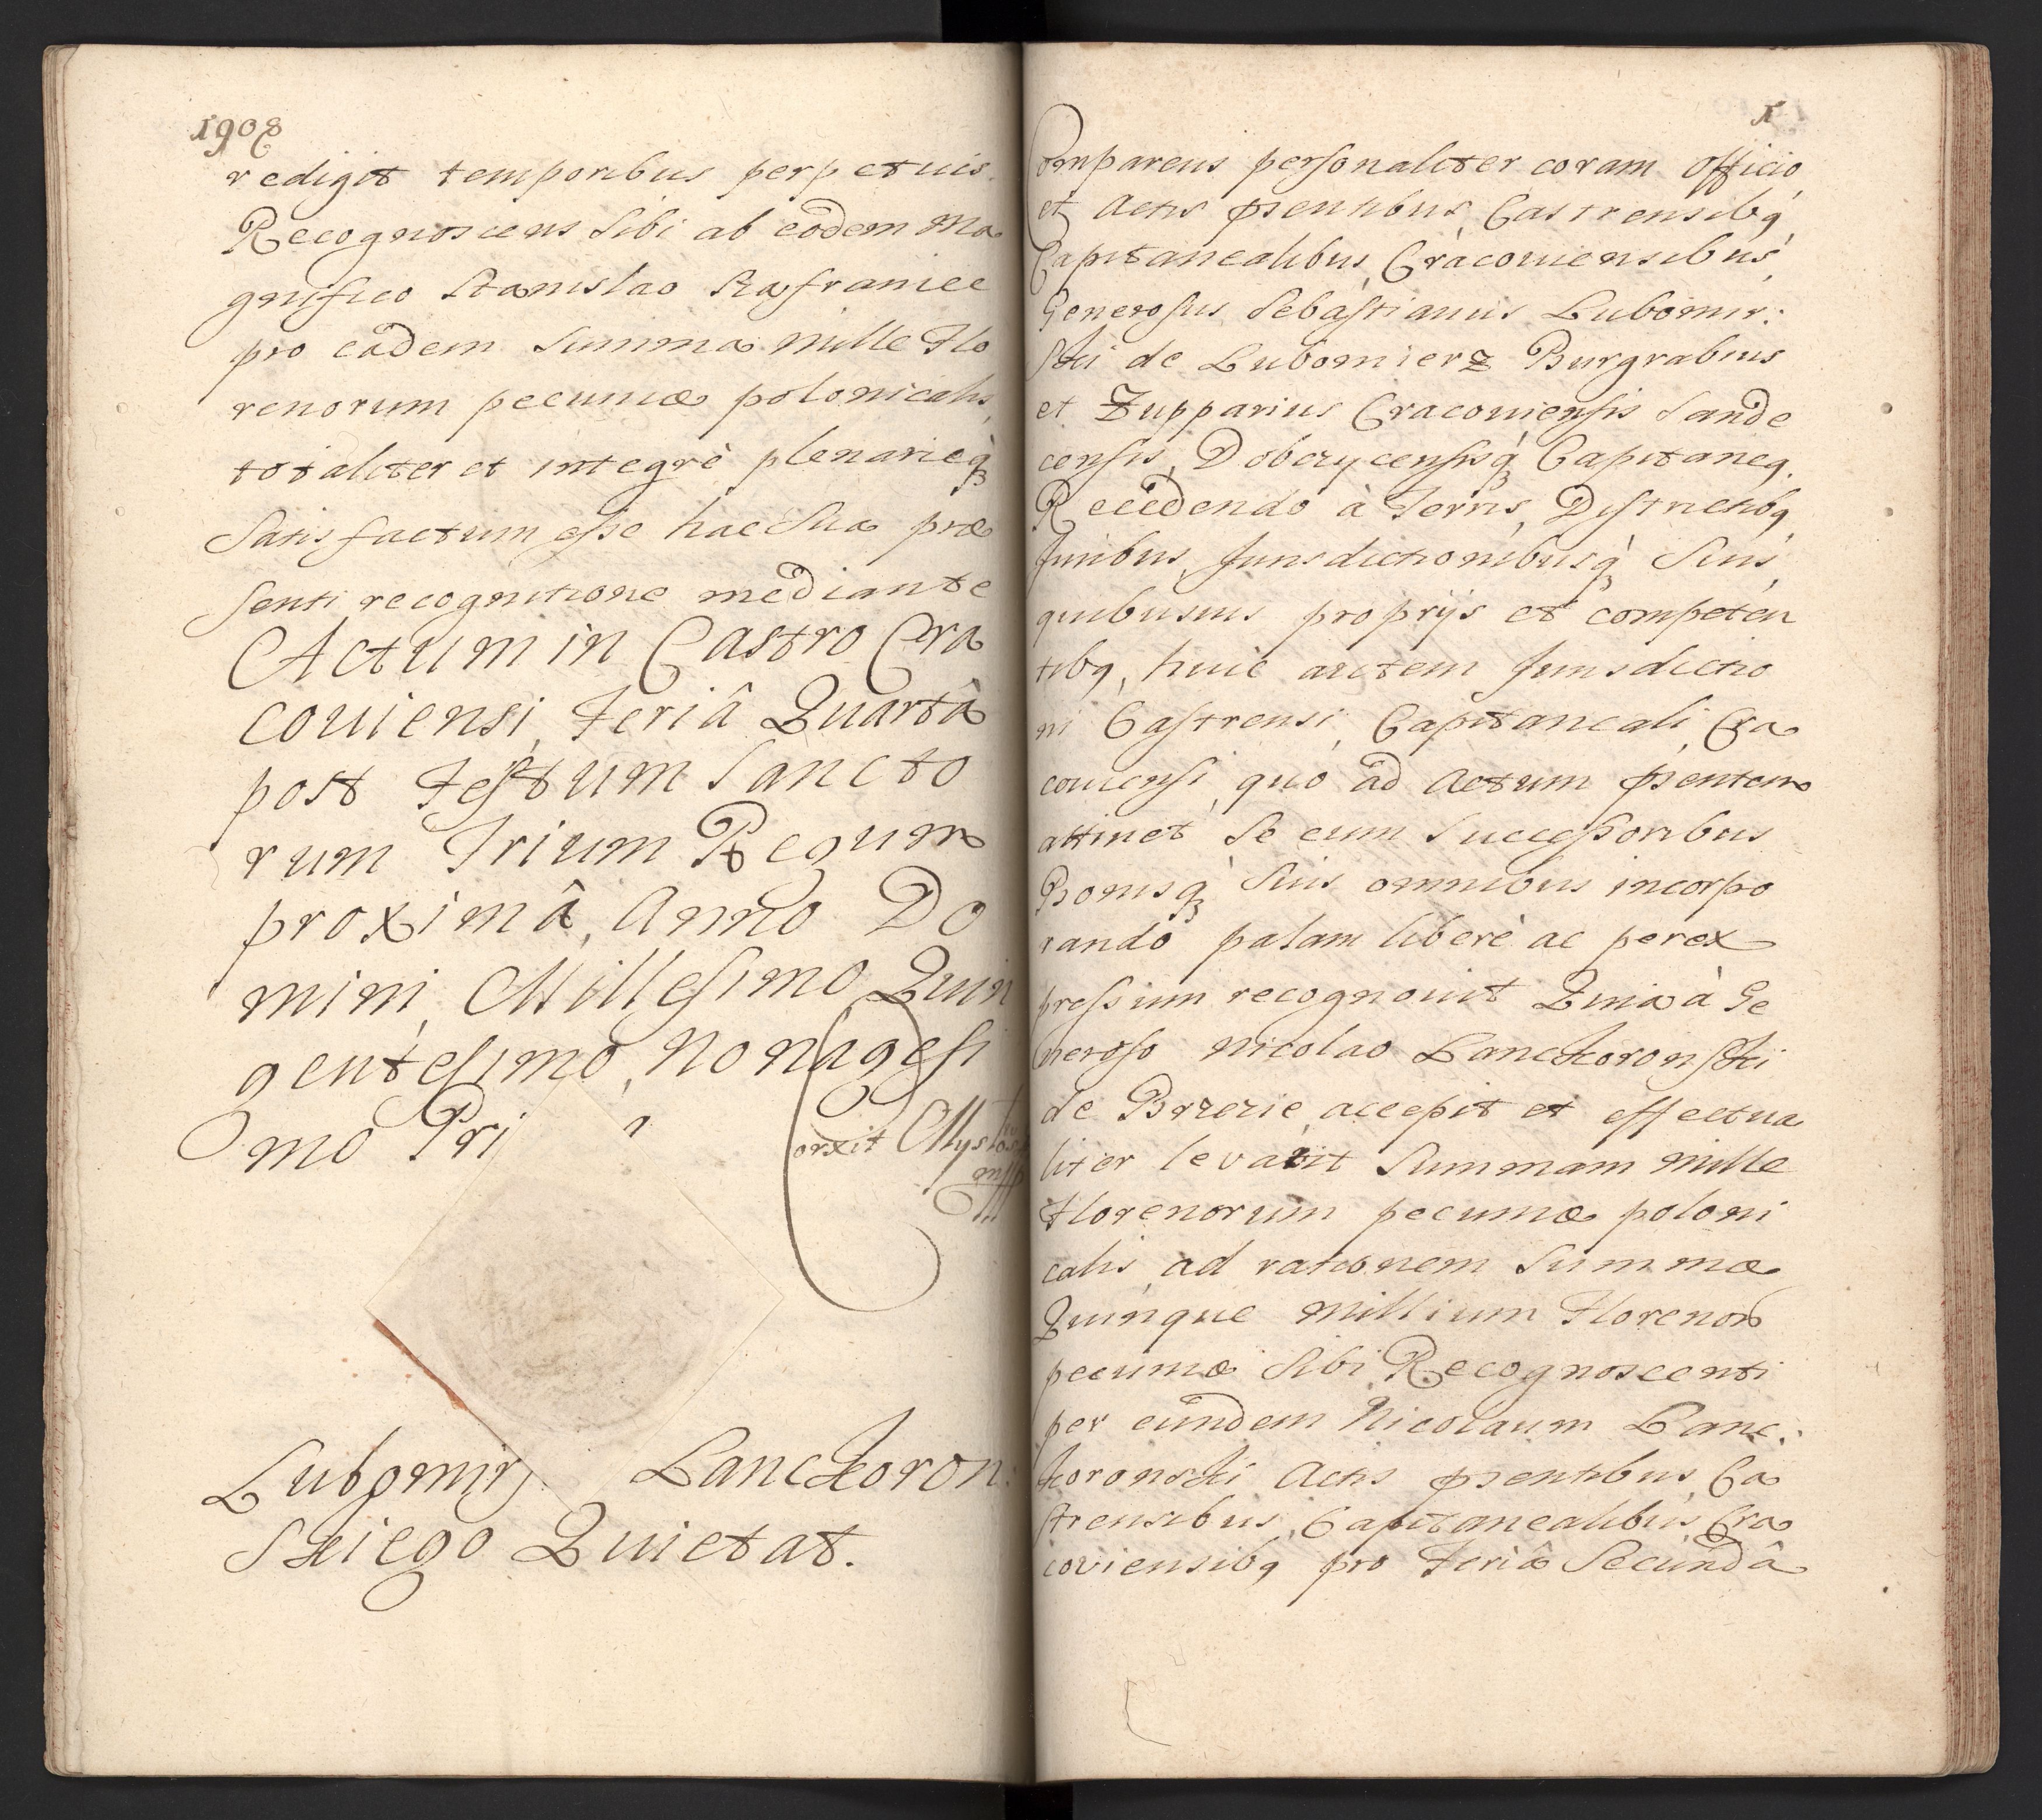 1908
redigit temporibus perpetuis.
Recognoscens Sibi ab eodem Ma
gnifico Stanislao Szafraniec
pro eadem Summa mille Flo
renorum pecuniæ polonicalis,
totaliter et integrè plenarieq́ꝫ
Satisfactum esse hac Sua præ
senti recognitione mediante
Actum in Castro Cra
coviensi, Feriâ Quartâ
post Festum Sancto
rum Trium Regum
proximâ, Anno Do
mini, Millesimo Quin
gentesimo, Nonagesi
mo Pri
Lubomir Lanckoron:
Skiego Quietat.
1
Comparens personaliter coram Officio
et Actis pͬsentibus, Castrensibꝗ
Capitanealibus, Cracoviensibus,
Generosus Sebastianus Lubomir:
Ski de Lubomierz Burgrabius
et Zupparius Cracoviensis Sande
censis, Dobczycensisq́ꝫ Capitaneꝗ.
Recedendo à Terris, Districtibꝗ
Juribus, Jurisdictionibusq́ꝫ Suis
quibusuis proprijs et competen
tibꝗ, huic autem Jurisdictio
ni Castrensi, Capitaneali, Cra
coviensi, quo ad Actum pͬsentem
attinet Se cum Successoribus
Bonisq́ꝫ Suis omnibus incorpo
rando palam liberè ac perex
pressum recognouit Quia à Ge
neroso Nicolao Lanckoronski
de Brzezie, accepit et effectua
liter levavit Summam mille
Florenorum pecuniæ poloni
calis ad rationem Summæ
Quinque Millium Florenor
pecuniæ Sibi Recognoscenti
per eundem Nicolaum Lanc:
koronski Actis pͬsentibus, Ca
strensibus, Capitanealibus, Cra
coviensibꝗ pro Feriâ Secundâ